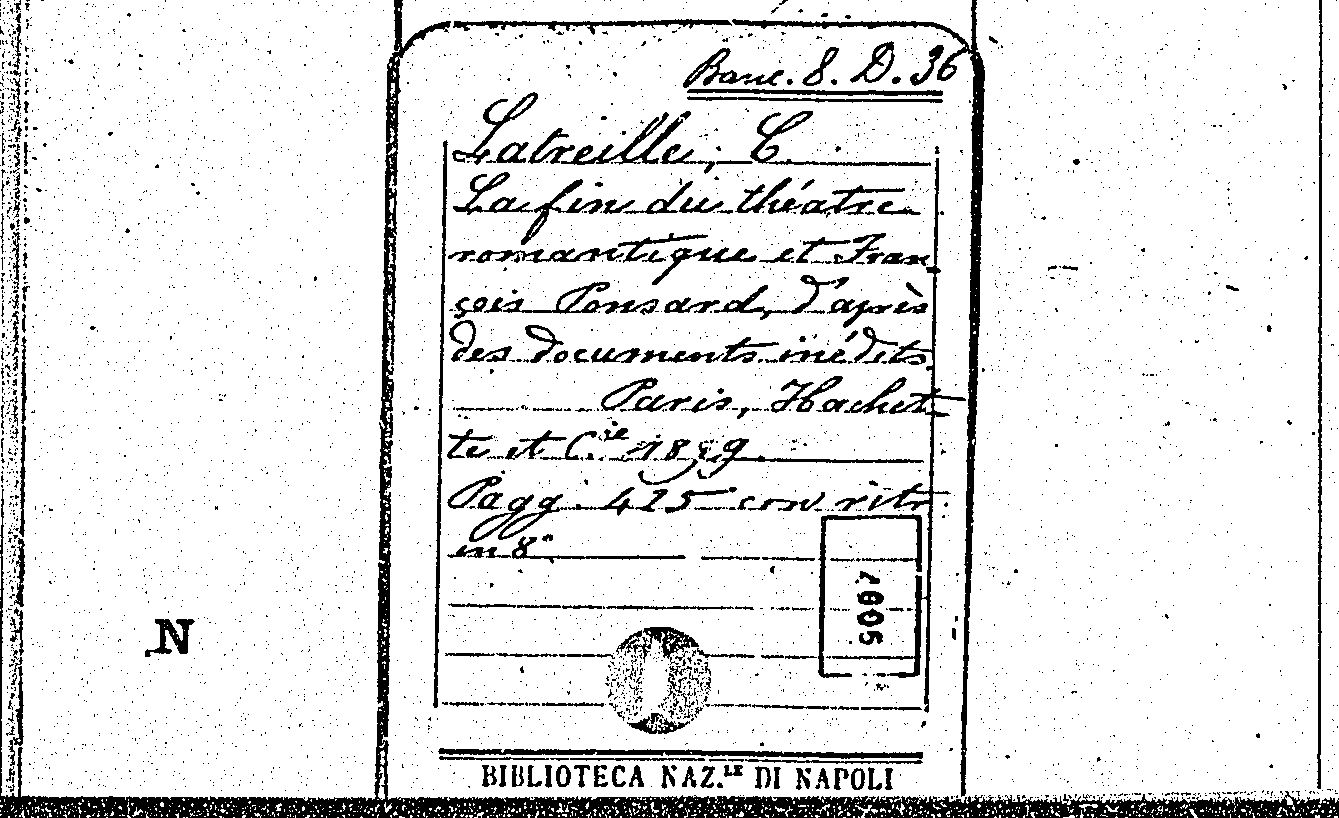 Banc. 8. D. 36
Latreille, C.
La fin du théatre
romantique et Fran
çois Ponsard, d'après
des documents inédits
Paris, Hachet-
te et C.ie 1899.
Pagg. 425 con ritr.
in 8°
9007
N
BIBLIOTECA NAZ.LE DI NAPOLI